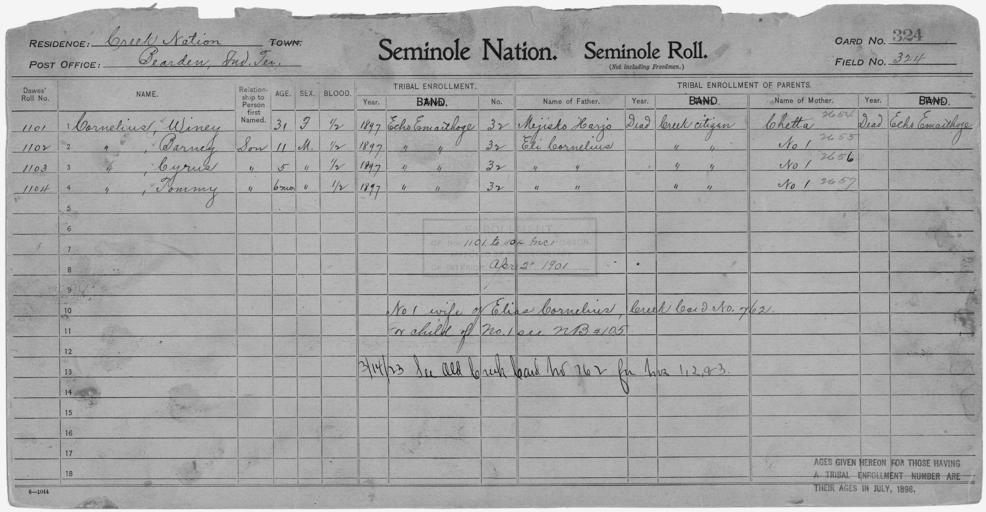 RESIDENCE: Creek Nation TOWN. Seminole Nation. Seminole Roll. CARD NO. 324
POST OFFICE: Bearden, Ind. Ter. (Not including Freedmen.) FIELD NO. 324
Dawes' Roll No. NAME. Relationship to Person first Named. AGE. SEX. BLOOD. TRIBAL ENROLLMENT. TRIBAL ENROLLMENT OF PARENTS.
Year. BAND. No. Name of Father. Year. BAND. Name of Mother. Year. BAND.
1101 1 Cornelius, Winey 31 F 1/2 1897 Echo Emathoge 32 Mijisko Harjo Dead Creek citizen Chetta 2654 Dead Echo Emathoge
1102 2 " , Barney Son 11 M. 1/2 1897 " " 32 Eli Cornelius " " No 1 2655
1103 3 " , Cyrus " 5 " 1/2 1897 " " 32 " " " " No 1 2656
1104 4 " , Tommy " 6mo " 1/2 1897 " " 32 " " " " No 1 2657
5
6 ENROLLMENT
7 1101 to 1104 Inc.
8 Apr 2 1901
9
10 No 1 wife of Elias Cornelius, Creek Card No. 762.
11 For child of No. 1 see NB #105
12
13 3/14/23 See Old Creek Card No 762 for Nos 1, 2, & 3.
14
15
16
17
18
AGES GIVEN HEREON FOR THOSE HAVING
A TRIBAL ENROLLMENT NUMBER ARE
THEIR AGES IN JULY, 1898.
6—1044